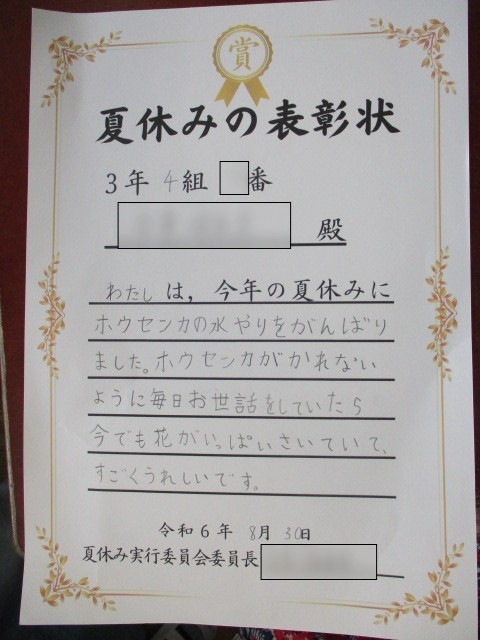 賞
夏休みの表彰状
3年 4組 番
殿
わたしは，今年の夏休みに
ホウセンカの水やりをがんばり
ました。ホウセンカがかれない
ように毎日お世話をしていたら
今でも花がいっぱいさいていて、
すごくうれしいです。
令和6年 8月 30日
夏休み実行委員会委員長